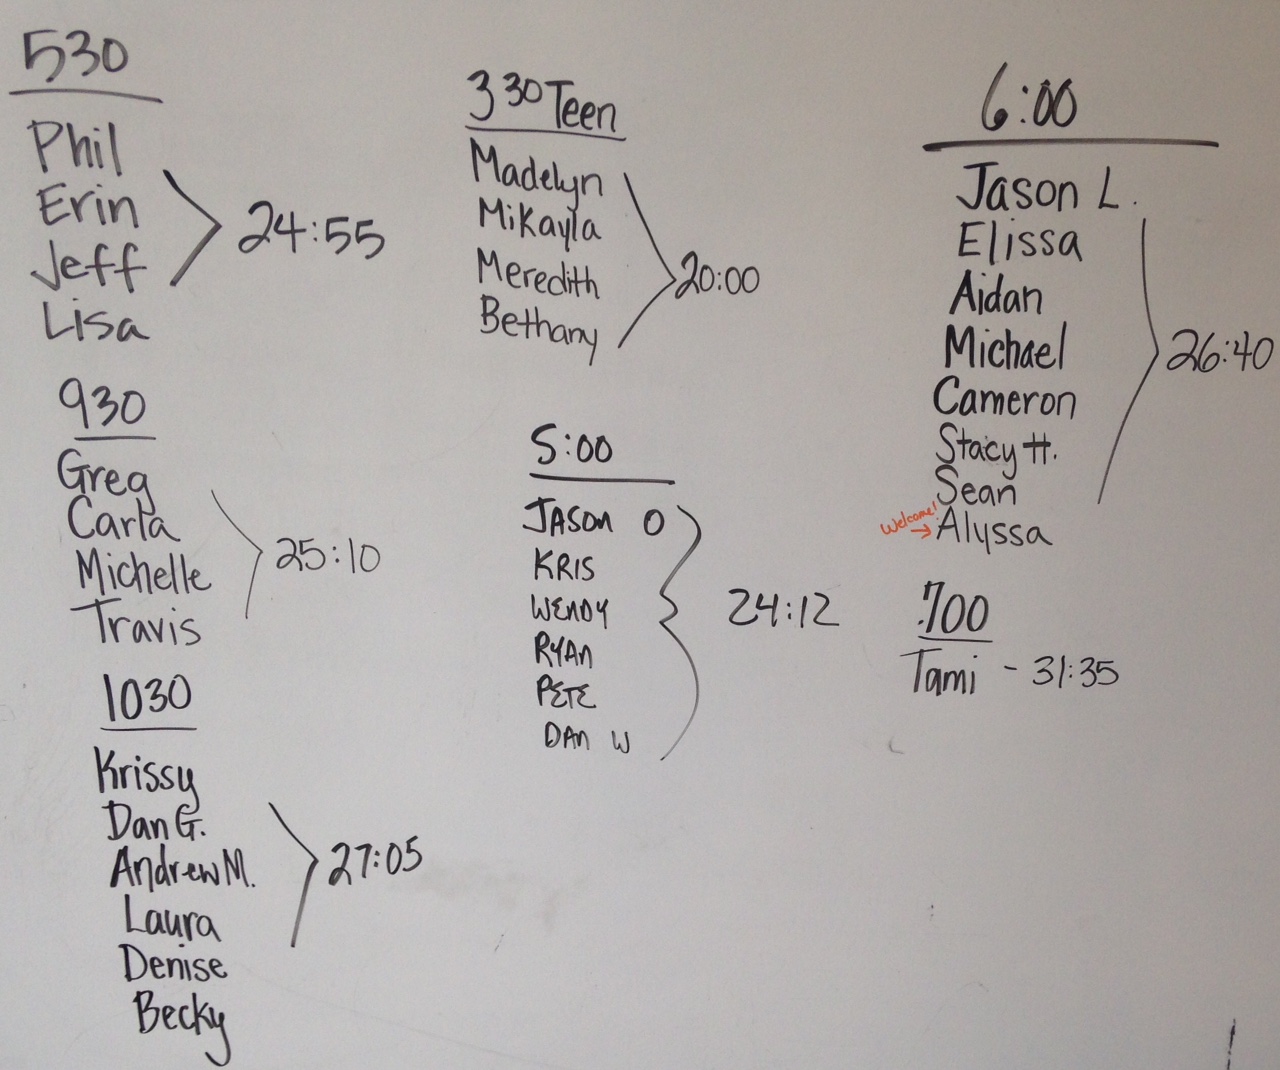 530
Phil
Erin
Jeff
Lisa
24:55
930
Greg
Carla
Michelle
Travis
25:10
1030
Krissy
Dan G.
Andrew M.
Laura
Denise
Becky
27:05
3 30 Teen
Madelyn
Mikayla
Meredith
Bethany
20:00
5:00
JASON O
KRIS
WENDY
RYAN
PETE
DAN W
24:12
6:00
Jason L.
Elissa
Aidan
Michael
Cameron
Stacy H.
Sean
Welcome! → Alyssa
26:40
700
Tami - 31:35